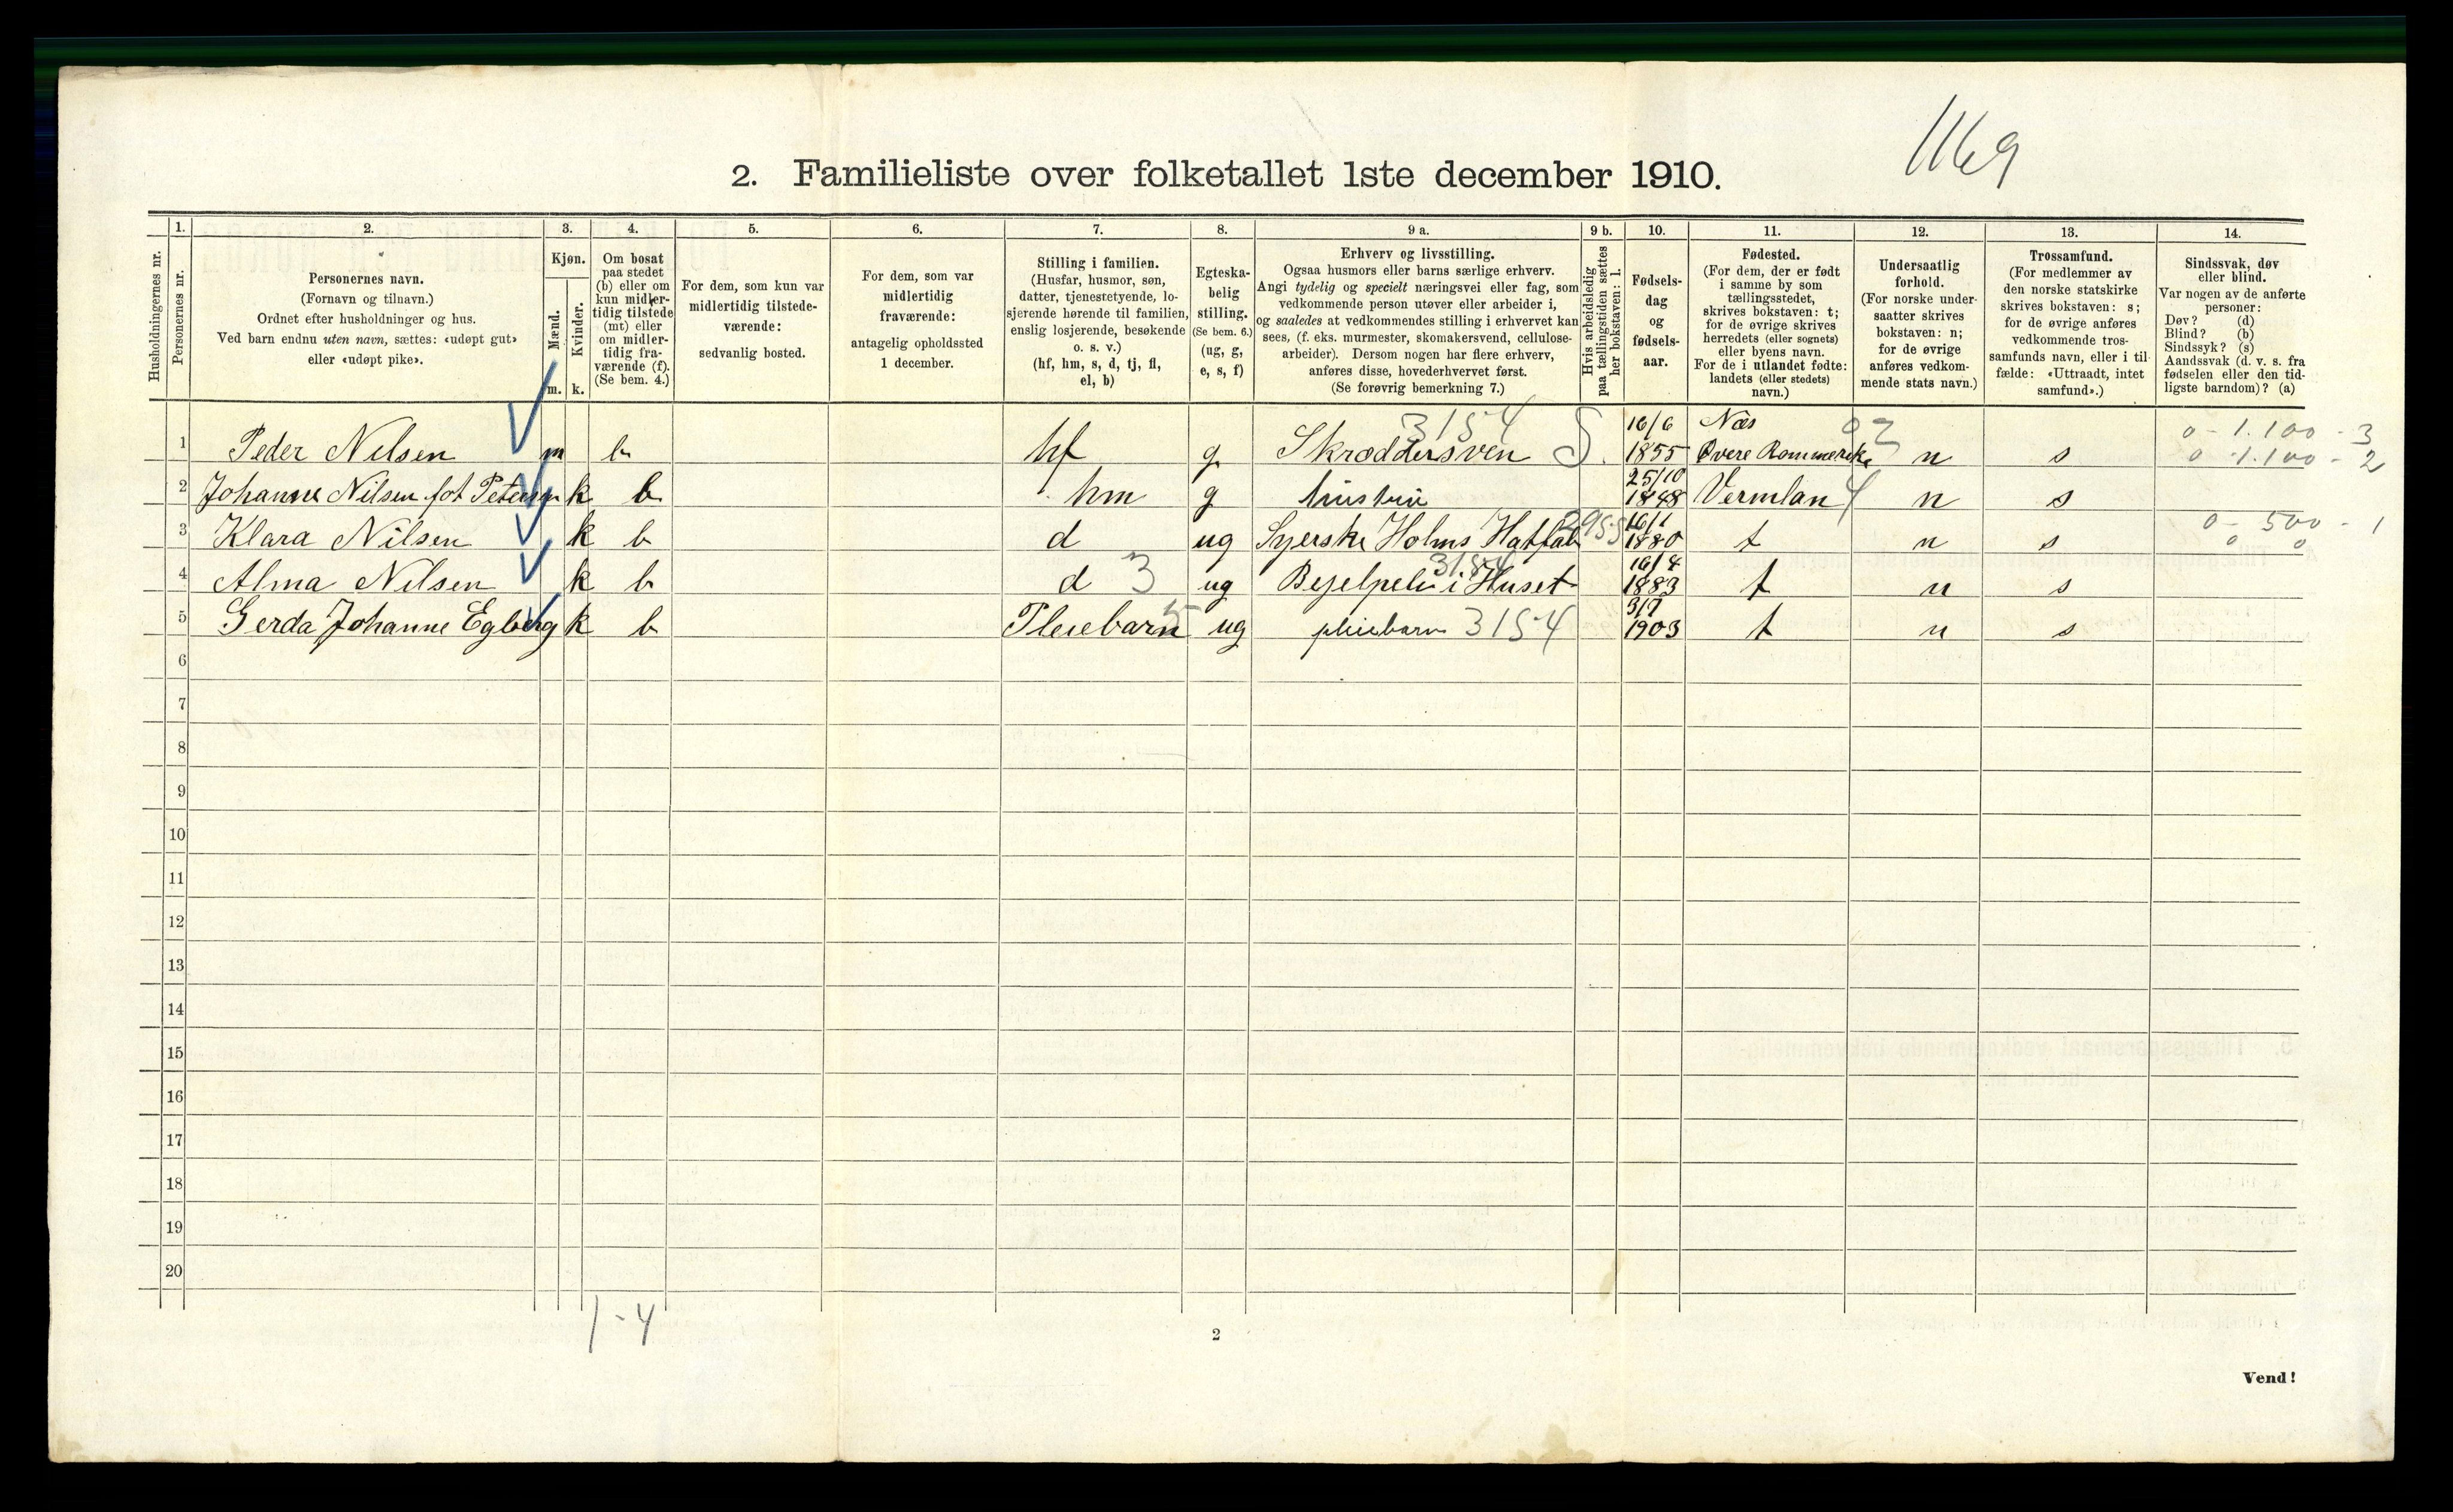 1169
2. Familieliste over folketallet 1ste december 1910.
Husholdningernes nr.
1.
Personernes nr.
2.
Personernes navn.
(Fornavn og tilnavn.)
Ordnet efter husholdninger og hus.
Ved barn endnu uten navn, sættes: «udøpt gut»
eller «udøpt pike».
3.
Kjøn.
Mænd.
m.
Kvinder.
k.
4.
Om bosat
paa stedet
(b) eller om
kun midler-
tidig tilstede
(mt) eller
om midler-
tidig fra-
værende (f).
(Se bem. 4.)
5.
For dem, som kun var
midlertidig tilstede-
værende:
sedvanlig bosted.
6.
For dem, som var
midlertidig
fraværende:
antagelig opholdssted
1 december.
7.
Stilling i familien.
(Husfar, husmor, søn,
datter, tjenestetyende, lo-
sjerende hørende til familien,
enslig losjerende, besøkende
o. s. v.)
(hf, hm, s, d, tj, fl,
el, b)
8.
Egteska-
belig
stilling.
(Se bem. 6.)
(ug, g,
e, s, f)
9 a.
Erhverv og livsstilling.
Ogsaa husmors eller barns særlige erhverv.
Angi tydelig og specielt næringsvei eller fag, som
vedkommende person utøver eller arbeider i,
og saaledes at vedkommendes stilling i erhvervet kan
sees, (f. eks. murmester, skomakersvend, cellulose-
arbeider). Dersom nogen har flere erhverv,
anføres disse, hovederhvervet først.
(Se forøvrig bemerkning 7.)
9 b.
Hvis arbeidsledig
paa tællingstiden sættes
her bokstaven: l.
10.
Fødsels-
dag
og
fødsels-
aar.
11.
Fødested.
(For dem, der er født
i samme by som
tællingsstedet,
skrives bokstaven: t;
for de øvrige skrives
herredets (eller sognets)
eller byens navn.
For de i utlandet fødte:
landets (eller stedets)
navn.)
12.
Undersaatlig
forhold.
(For norske under-
saatter skrives
bokstaven: n;
for de øvrige
anføres vedkom-
mende stats navn.)
13.
Trossamfund.
(For medlemmer av
den norske statskirke
skrives bokstaven: s;
for de øvrige anføres
vedkommende tros-
samfunds navn, eller i til-
fælde: «Uttraadt, intet
samfund».)
14.
Sindssvak, døv
eller blind.
Var nogen av de anførte
personer:
Døv? (d)
Blind? (b)
Sindssyk? (s)
Aandssvak (d. v. s. fra
fødselen eller den tid-
ligste barndom)? (a)
3154 16/6 Næs 02 0 - 1.100 - 3
1 Peder Nilsen m b hf g Skræddersven S. 1855 Øvere Rommerike n s 0 1.100 - 2
25/10
2 Johanne Nilsen fot Petersen k b hm g hustru 1848 Vermlan 4 n s
16/1 0 - 500 - 1
3 Klara Nilsen k b d ug Syerske Holms Hatfab 1880 t n s 0 0
3154 16/4
4 Alma Nilsen k b d 3 ug i Huset 1883 t n s
3/7
5 Gerda Johanne Egberg k b Pleiebarn ug pleiebarn 3154 1903 t n s
6
7
8
9
10
11
12
13
14
15
16
17
18
19
20
1-4
2
Vend!